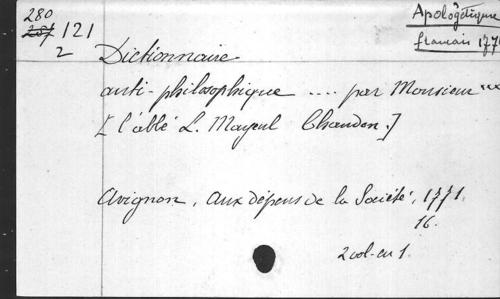 280
287 121
2
Apologétique
français 1771
Dictionnaire
anti-philosophique .... par Monsieur ***
[l'abbé L. Mayeul Chaudon.]
Avignon, aux dépens de la Société, 1771.
16.
2 vol. en 1.